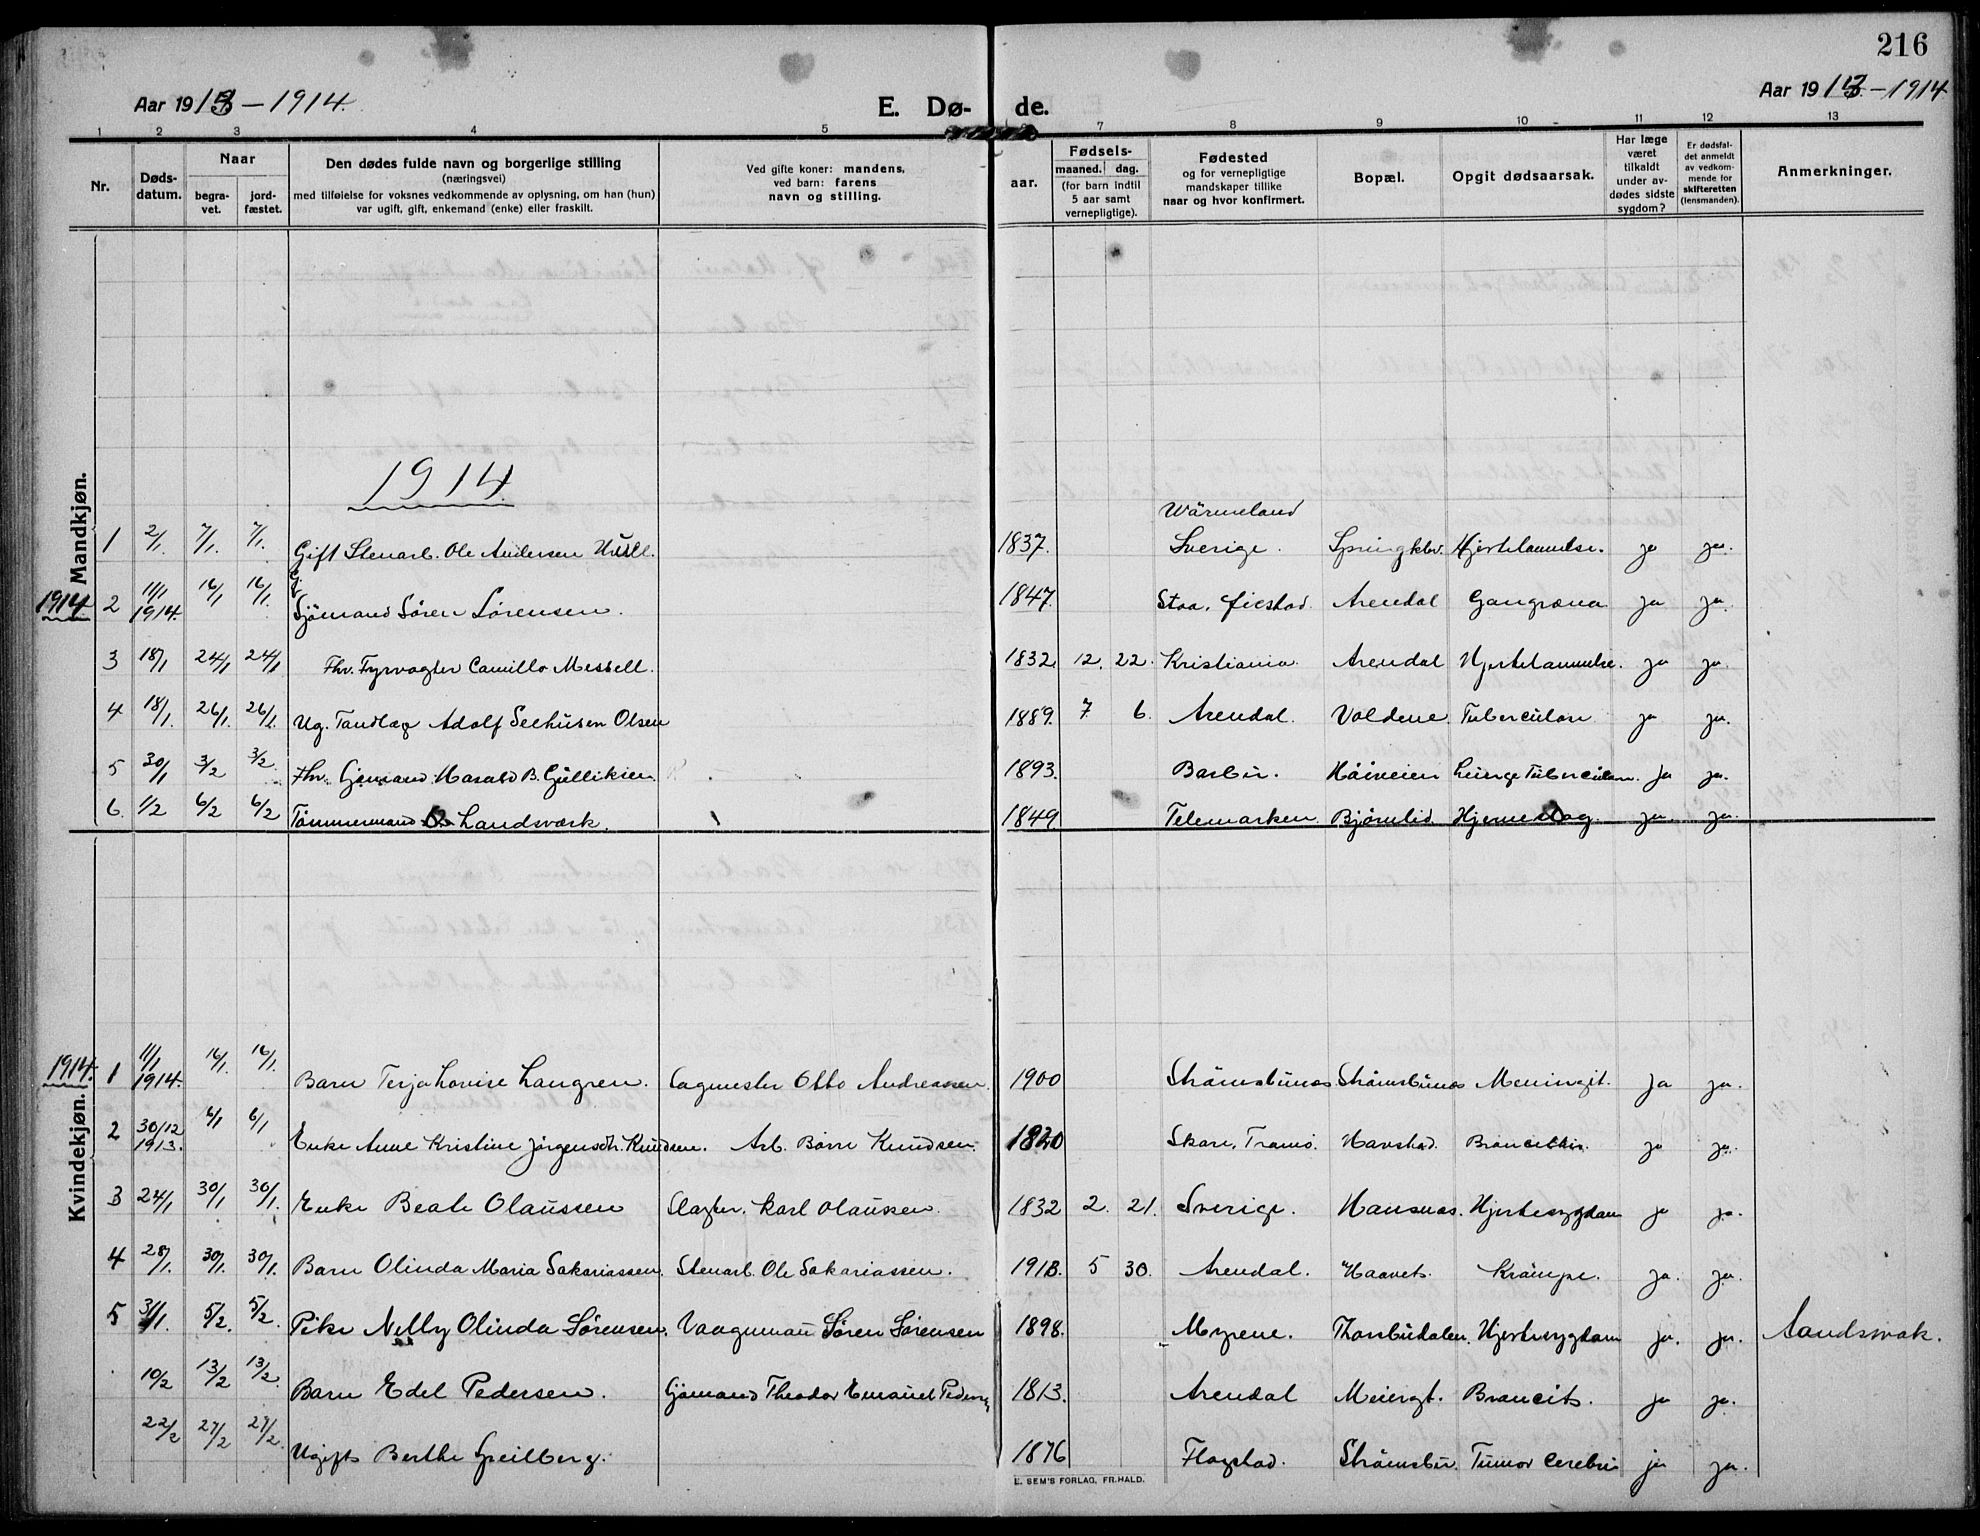 216
Aar 1913 - 1914.
E. Dø- de.
Aar 1913. - 1914
1 2 3 4 5 6 7 8 9 10 11 12 13
Nr.
Døds-datum.
Naar
begra-vet.
jord-fæstet.
Den dødes fulde navn og borgerlige stilling
(næringsvei)
med tilføielse for voksnes vedkommende av oplysning, om han (hun)
var ugift, gift, enkemand (enke) eller fraskilt.
Ved gifte koner: mandens,
ved barn: farens
navn og stilling.
Fødsels-
aar.
maaned. dag.
(for barn indtil
5 aar samt
vernepligtige).
Fødested
og for vernepligtige
mandskaper tillike
naar og hvor konfirmert.
Bopæl.
Opgit dødsaarsak.
Har læge
været
tilkaldt
under av-
dødes sidste
sygdom?
Er dødsfal-
det anmeldt
av vedkom-
mende for
skifteretten
(lensmanden).
Anmerkninger.
Mandkjøn.
1914
1914.
1 2/1. 7/1. 7/1. Gift Stenarb. Ole Andersen 1837. Wärmeland Sverige. Springkbv. Hjertelammelse. ja ja.
2 11/1 1914. 16/1 16/1. Sjömand Sören Sörensen. 1847. Staa, Öiestad Arendal Gangræna ja ja.
3 18/1 24/1 24/1 Fhv. Fyrvogter Camillo Messell. 1832. 12. 22. Kristiania. Arendal Hjertelammelse. ja ja.
4 18/1. 26/1. 26/1. Ug. Tandlæg Adolf Seehusen Olsen 1889. 7 6. Arendal. Voldene Tuberculose ja ja.
5 30/1 3/2 3/2. Fhv. Gjömand Harald B. Gulliksen. 1893. Barbu. Höiveien Lunge Tuberculose. ja ja.
6. 1/2 6/2 6/2 Tömmermand O. Landsværk. 1849. Telemarken Björnlid Hjerneslag. ja. ja.
Kvindekjøn.
1914.
1 11/1 1914. 16/1. 16/1. Barn Terja Lovise Langren. Sagmester Otto Andreassen. 1900 Strömsbunes Strömsbunes Meningit. ja ja.
2 30/12 1913. 6/1 6/1 Enke Anne Kristine Jörgensdtr. Knudsen. Arb. Börre Knudsen. 1820 Skare, Tromö. Havstad. ja ja.
3 24/1 30/1 30/1. Enke Beate Olaussen Slagter. Karl Olaussen. 1832 2. 21. Sverige. Hansnæs. Hjertesygdom ja ja.
4 28/1. 30/1. 30/1. Barn Olinda Maria Sakariassen. Stenarb. Ole Sakariassen. 1913. 5 30. Arendal. Haavets. Krampe. ja. ja.
5 31/1. 5/2. 5/2. Pike Nelly Olinda Sörensen. Vaagemau Sören Sörensen 1898. Myrene. Thorbudalen. Hjertesygdom ja. ja. Aandsvak.
10/2 13/2 13/2. Barn Edel Pedersen. Gjömand Theodor Emanuel Pedersen 1813. Arendal Meiergt. Broncits. ja ja.
22/2 27/2 27/2. Ugift Berthe Speilberg. 1876 Flagstad. Strömsbu. Tumor cerebri ja ja.
E. SEM'S FORLAG, FR.HALD.